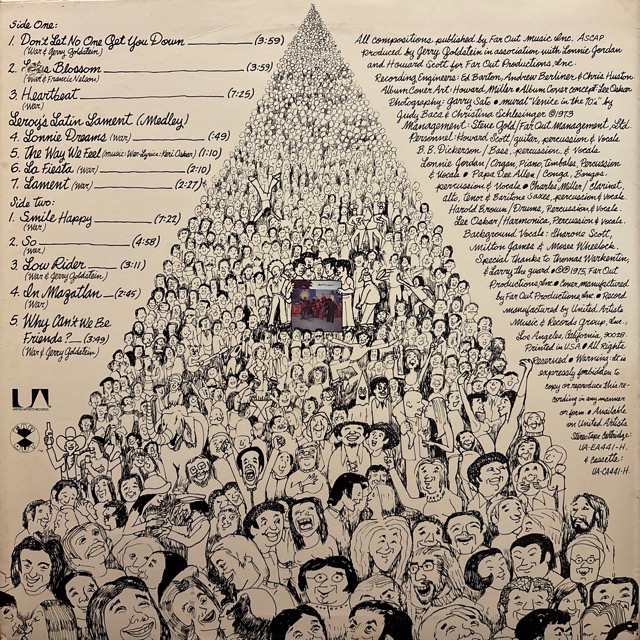 Side One:
1. Don't Let No One Get You Down (3:59)
(War & Jerry Goldstein)
2. Lotus Blossom (3:59)
(War & Francis Nelson)
3. Heartbeat (7:25)
(War)
Leroy's Latin Lament (Medley)
4. Lonnie Dreams (War) (:49)
5. The Way We Feel (Music: War-Lyrics: Keri Oskar) (1:10)
6. La Fiesta (War) (2:10)
7. Lament (War) (2:27)
Side Two:
1. Smile Happy (7:22)
(War)
2. So (4:58)
(War)
3. Low Rider (3:11)
(War & Jerry Goldstein)
4. In Mazatlan (2:45)
(War)
5. Why Can't We Be
Friends? (3:49)
(War & Jerry Goldstein)
UA
UNITED ARTISTS RECORDS
All compositions published by Far Out Music, Inc. ASCAP
Produced by Jerry Goldstein in association with Lonnie Jordan
and Howard Scott for Far Out Productions, Inc.
Recording Engineers: Ed Barton, Andrew Berliner & Chris Huston
Album Cover Art: Howard Miller • Album Cover concept: Lee Oskar
Photography: Garry Sato • mural "Venice in the 70's" by
Judy Baca & Christina Schlesinger ©1973
Management: Steve Gold/Far Out Management, Ltd.
Personnel: Howard Scott/guitar, percussion & vocals
B.B. Dickerson/Bass, percussion, & Vocals
Lonnie Jordan/Organ, Piano, Timbales, Percussion
& Vocals • Papa Dee Allen/Conga, Bongos,
percussion & Vocals • Charles Miller/Clarinet,
alto, Tenor & Baritone Saxes, percussion & Vocals
Harold Brown/Drums, Percussion & Vocals
Lee Oskar/Harmonica, Percussion & Vocals
Background Vocals: Sharone Scott,
Milton James & Moses Wheelock.
Special Thanks to Thomas Warkentin,
& Larry the guard • ©℗ 1975, Far Out
Productions, Inc • Cover manufactured
by Far Out Productions, Inc. • Record
manufactured by United Artists
Music & Records Group, Inc.,
Los Angeles, California 90028
Printed in USA • All Rights
Reserved • Warning: It is
expressly forbidden to
copy or reproduce this re-
cording in any manner
or form • Available
on United Artists
Stereotape Cartridge:
UA-EA441-H,
& Cassette:
UA-CA441-H.